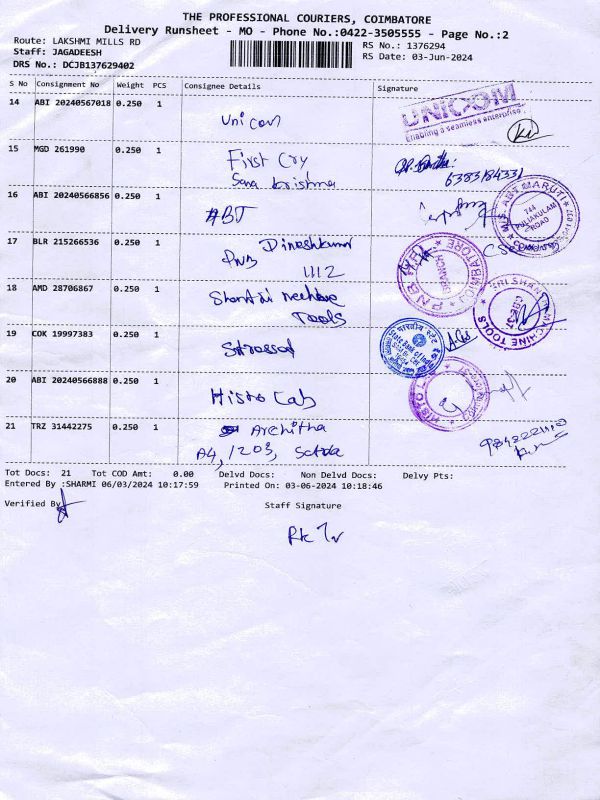 THE PROFESSIONAL COURIERS, COIMBATORE
Delivery Runsheet - MO - Phone No.:0422-3505555 - Page No.:2
Route: LAKSHMI MILLS RD
RS No.: 1376294
Staff: JAGADEESH
RS Date: 03-Jun-2024
DRS No.: DCJB137629402
S No Consignment No Weight PCS Consignee Details Signature
14 ABI 20240567018 0.250 1 Unicon
UNICOM
Enabling a seamless enterprise
15 MGD 261990 0.250 1 First Cry
Sara krishma
16 ABI 20240566856 0.250 1 ABT
ABT MARUTI
744
PULIAKULAM
ROAD
17 BLR 215266536 0.250 1 Dineshkumar
PNB 1112
PNB
BRANCH
18 AMD 28706867 0.250 1
Tools
MACHINE TOOLS
19 COK 19997383 0.250 1
State Bank of India
20 ABI 20240566888 0.250 1 Histo Lab
21 TRZ 31442275 0.250 1 Architha
A4, 1203,
Tot Docs: 21 Tot COD Amt: 0.00 Delvd Docs: Non Delvd Docs: Delvy Pts:
Entered By :SHARMI 06/03/2024 10:17:59 Printed On: 03-06-2024 10:18:46
Verified By
Staff Signature